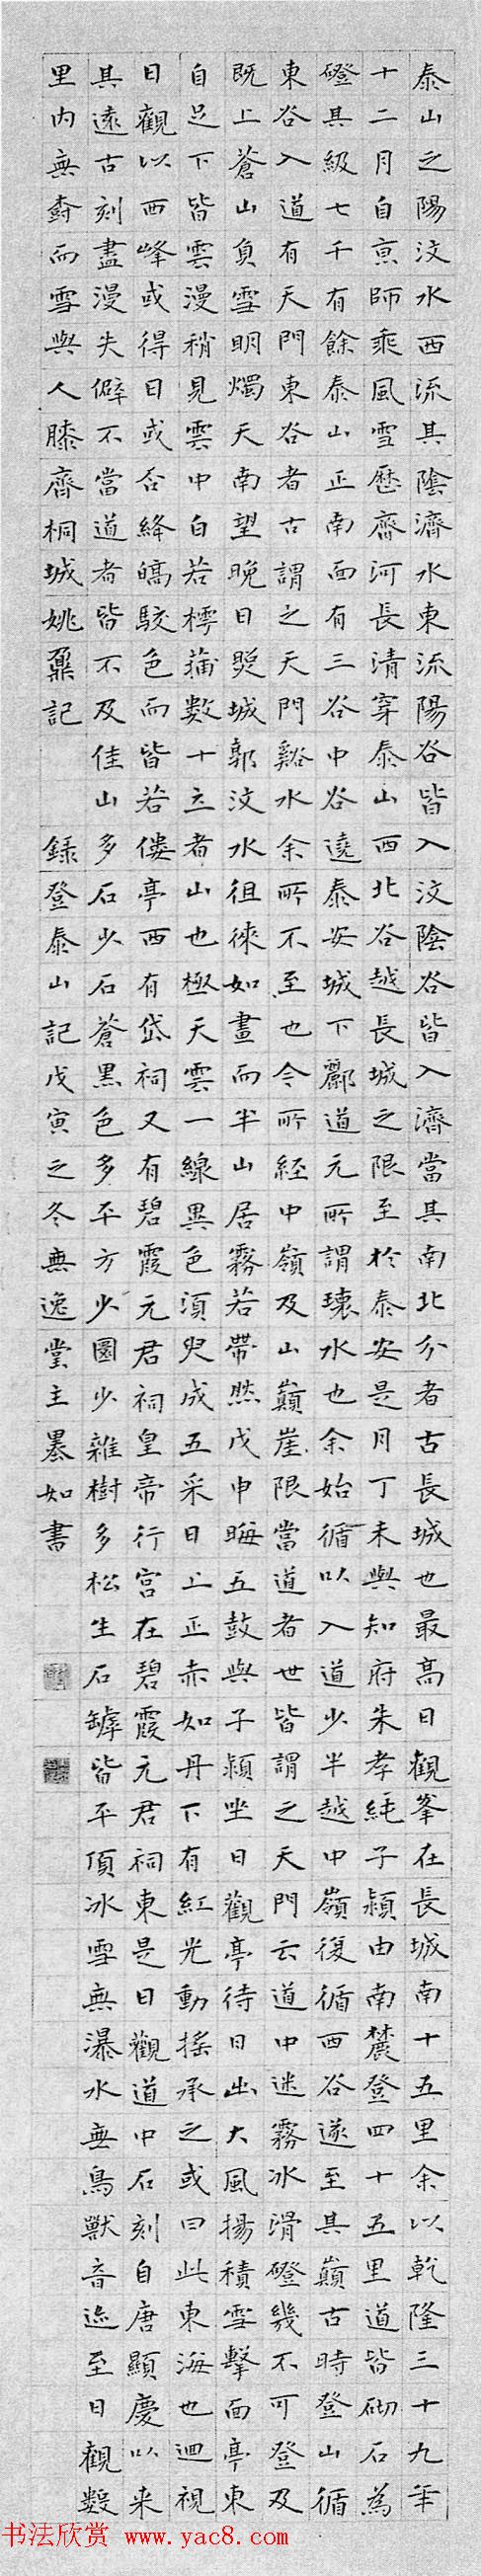 泰山之陽汶水西流其陰濟水東流陽谷皆入汶陰谷皆入濟當其南北分者古長城也最高日觀峯在長城南十五里余以乾隆三十九年
十二月自京師乘風雪歷齊河長清穿泰山西北谷越長城之限至於泰安是月丁未與知府朱孝純子潁由南麓登四十五里道皆砌石為
磴其級七千有餘泰山正南面有三谷中谷遶泰安城下酈道元所謂環水也余始循以入道少半越中嶺復循西谷遂至其巔古時登山循
東谷入道有天門東谷者古謂之天門谿水余所不至也今所經中嶺及山巔崖限當道者世皆謂之天門云道中迷霧冰滑磴幾不可登及
既上蒼山負雪明燭天南望晚日照城郭汶水徂徠如畫而半山居霧若帶然戊申晦五鼓與子潁坐日觀亭待日出大風揚積雪擊面亭東
自足下皆雲漫稍見雲中白若樗蒱數十立者山也極天雲一線異色須臾成五采日上正赤如丹下有紅光動搖承之或曰此東海也迴視
日觀以西峰或得日或否絳皜駁色而皆若僂亭西有岱祠又有碧霞元君祠皇帝行宮在碧霞元君祠東是日觀道中石刻自唐顯慶以来
其遠古刻盡漫失僻不當道者皆不及佳山多石少石蒼黑色多平方少圜少雜樹多松生石罅皆平頂冰雪無瀑水無鳥獸音迹至日觀數
里內無樹而雪與人膝齊桐城姚鼐記
錄登泰山記戊寅之冬無逸堂主墨如書
书法欣赏 www.yac8.com